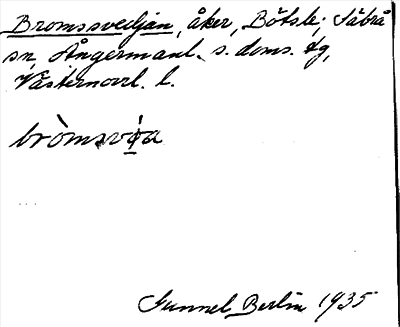 Bromssvedjan, åker, Bötsle, Säbrå
sn, Ångermanl. s. doms. tg,
Västernorrl. l.
bròmsvǿa
Gunnel Berlin 1935